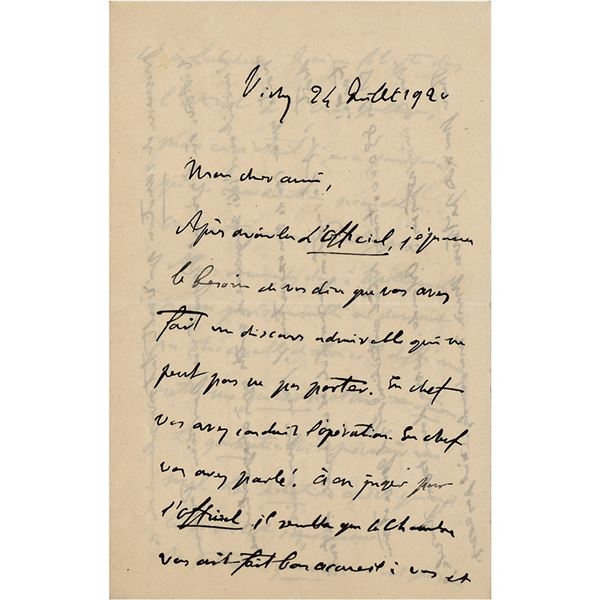 Vichy 24 Juillet 1920
Mon cher ami,
Après avoir lu L'Officiel, j'éprouve
le besoin de vous dire que vous avez
fait un discours admirable qui ne
peut pas ne pas porter. En chef
vous avez conduit l'opération. En chef
vous avez parlé. À en juger par
l'Officiel il semble que la Chambre
vous ait fait bon accueil à vous et